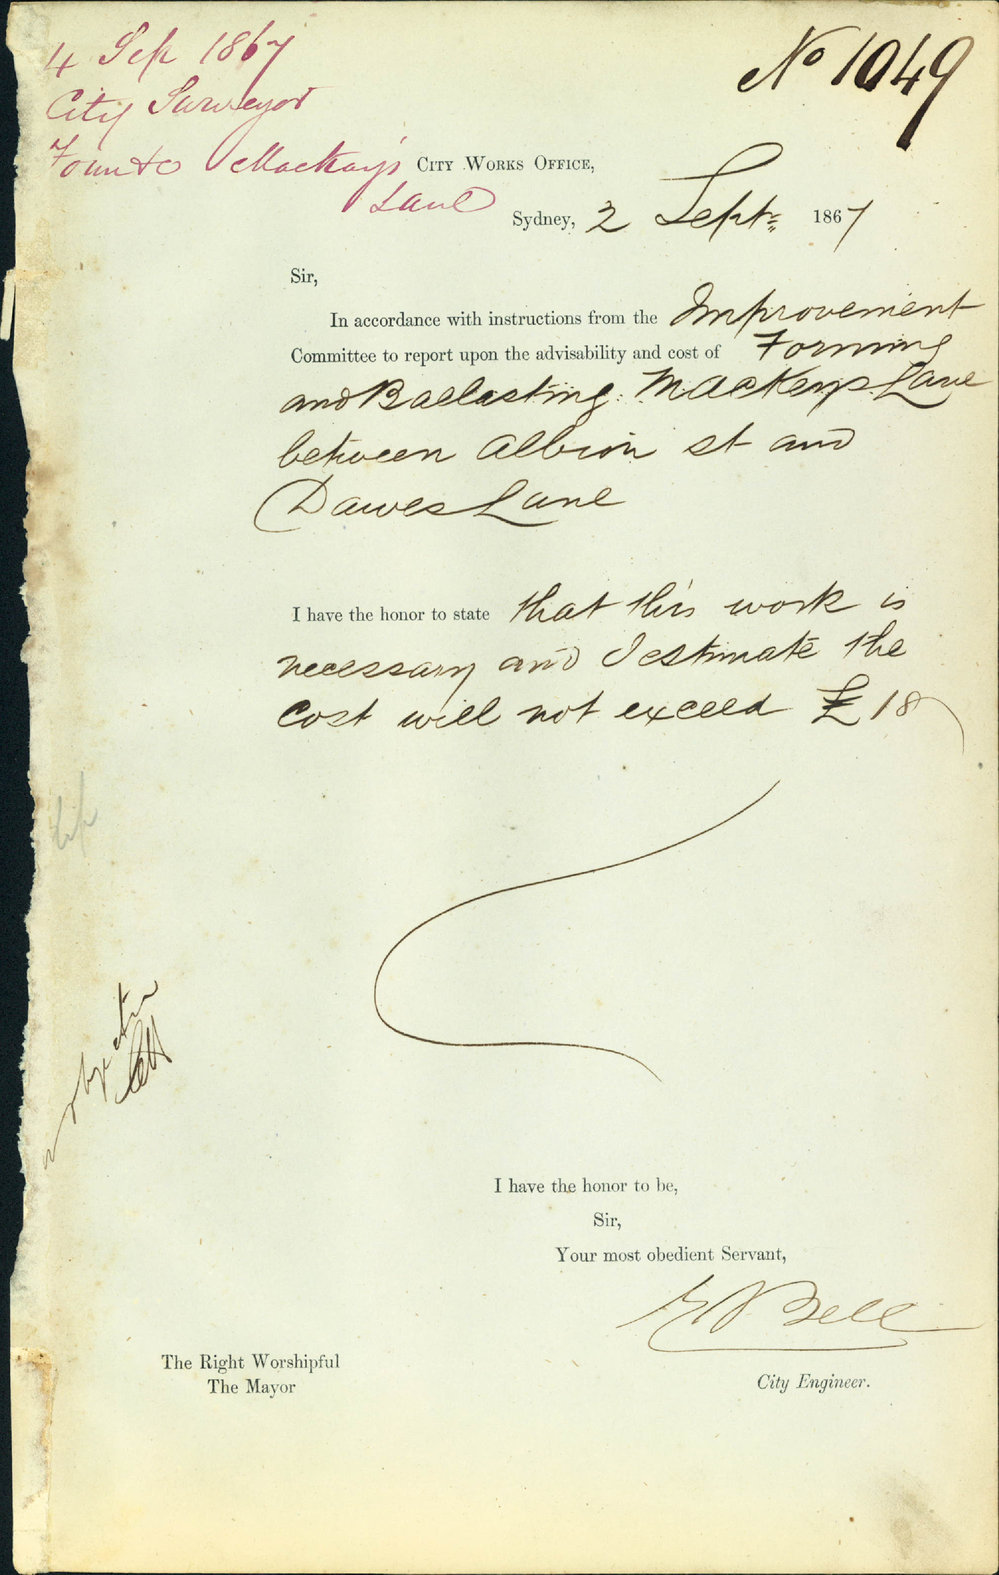 4 Sep 1867
City Surveyor
Form &c Mackay's
Lane
No 1049
City Works Office,
Sydney, 2 Sept: 1867
Sir,
In accordance with instructions from the Improvement
Committee to report upon the advisability and cost of Forming
and Ballasting Mackeys Lane
between Albion st and
Dawes Lane
I have the honor to state that this work is
necessary and I estimate the
cost will not exceed £18
I have the honor to be,
Sir,
Your most obedient Servant,
E Bell
City Engineer.
The Right Worshipful
The Mayor